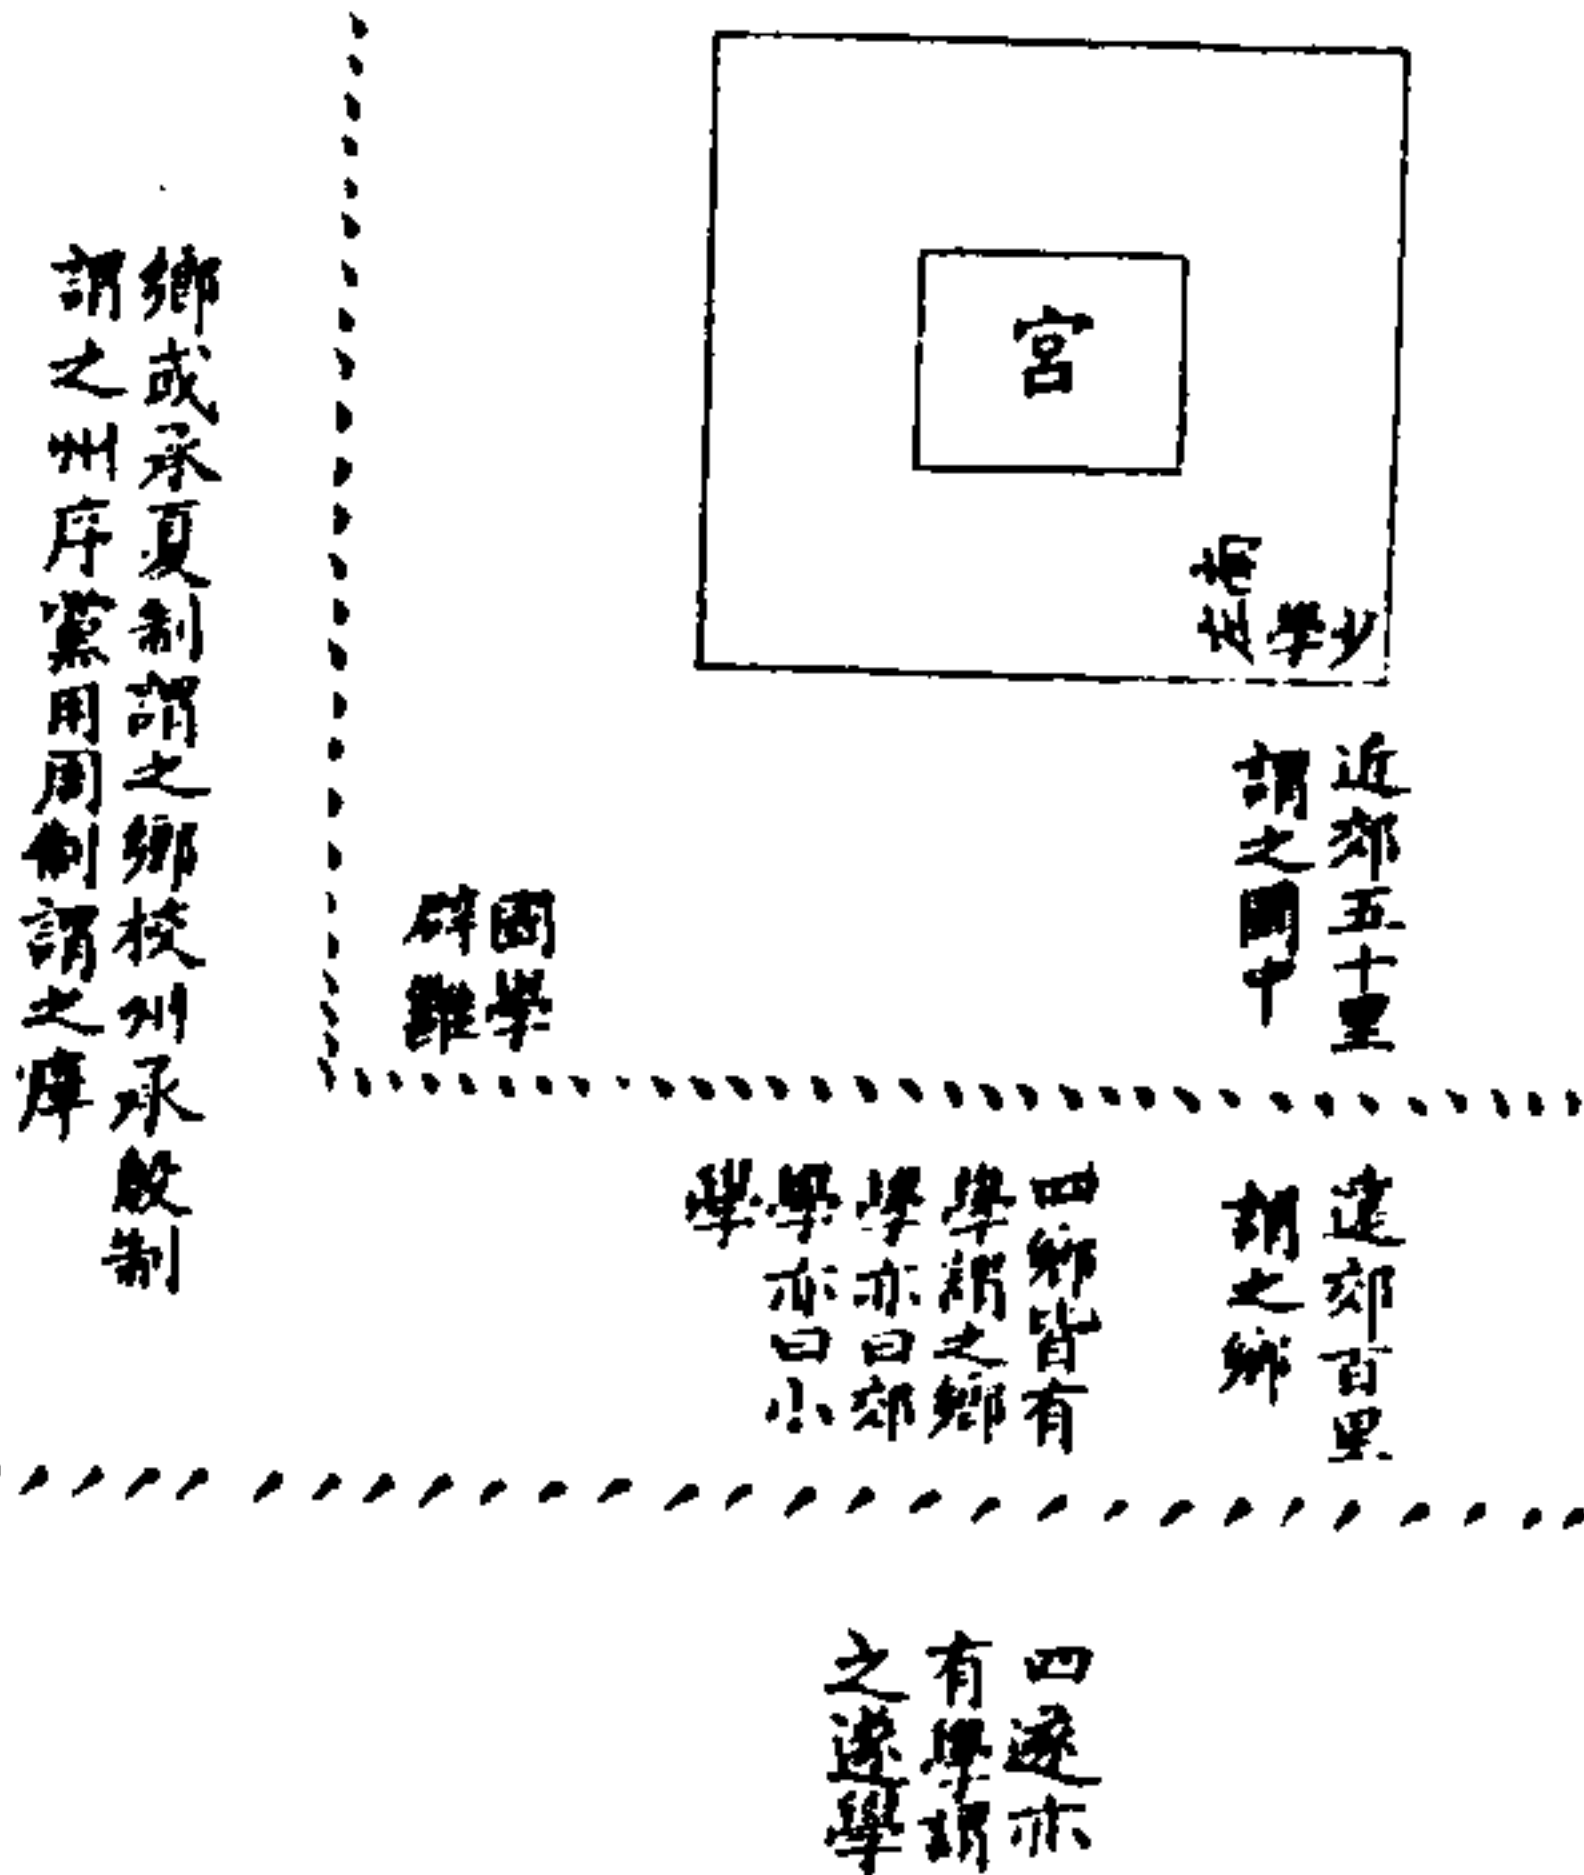 宮
學
近郊五十里
謂之國中
國學
辟雝
遠郊百里
謂之鄉
四鄉皆有
學謂之鄉
學亦曰郊
學亦曰小
學
四遂亦
有學謂
之遂學
鄉或承夏制謂之鄉校州承殷制
謂之州序黨用周制謂之庠